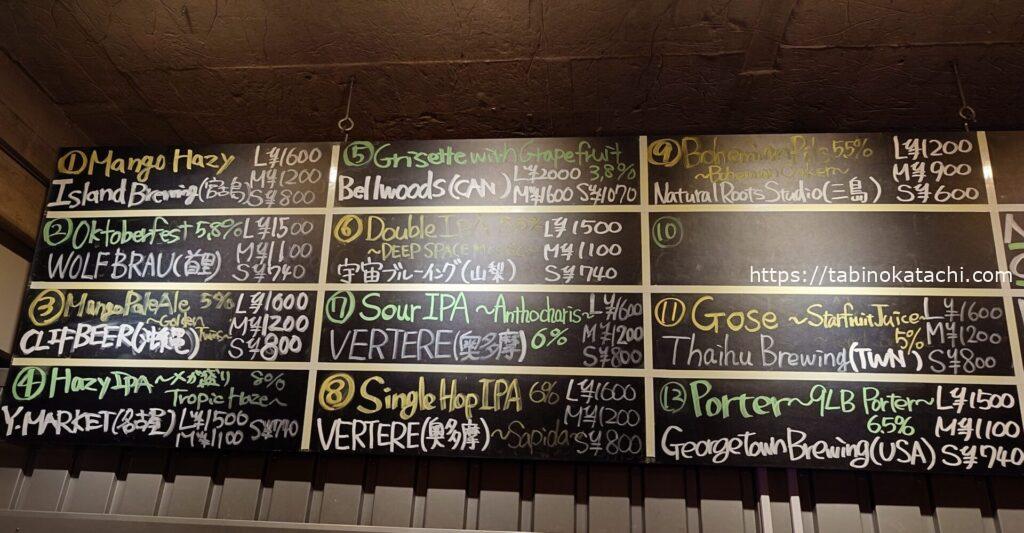 ① Mango Hazy L¥1600
M¥1200
Island Brewing(宮島) S¥800
② Oktoberfest 5.8% L¥1500
M¥1100
WOLF BRAU(首里) S¥740
③ Mango Pale Ale 5% L¥1600
~Golden M¥1200
CLIFF BEER(沖縄) S¥800
④ Hazy IPA ~メガ盛り 8%
Tropic Haze~
Y.MARKET(名古屋) L¥1500
M¥1100 S¥740
⑤ Grisette with Grapefruit
L¥2000 3.8%
Bellwoods(CAN) M¥1600 S¥1070
⑥ Double IPA L¥1500
~DEEP SPACE M¥1100
宇宙ブルーイング(山梨) S¥740
⑦ Sour IPA ~Anthocharis~ L¥1600
6% M¥1200
VERTERE(奥多摩) S¥800
⑧ Single Hop IPA 6% L¥1600
M¥1200
VERTERE(奥多摩) ~Sapida~ S¥800
⑨ Bohemian Pils 5.5% L¥1200
~Bohemian M¥900
Natural Roots Studio(三島) S¥600
⑩
⑪ Gose ~Starfruit Juice~ L¥1600
5% M¥1200
Thaihu Brewing(TWN) S¥800
⑫ Porter ~9LB Porter~ L¥1500
65% M¥1100
Georgetown Brewing(USA) S¥740
https://tabinokatachi.com